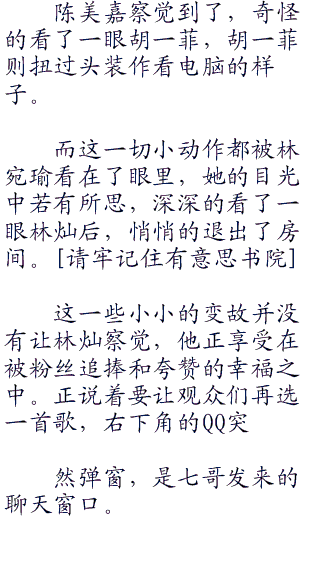 陈美嘉察觉到了，奇怪
的看了一眼胡一菲，胡一菲
则扭过头装作看电脑的样
子。
而这一切小动作都被林
宛瑜看在了眼里，她的目光
中若有所思，深深的看了一
眼林灿后，悄悄的退出了房
间。[请牢记住有意思书院]
这一些小小的变故并没
有让林灿察觉，他正享受在
被粉丝追捧和夸赞的幸福之
中。正说着要让观众们再选
一首歌，右下角的QQ突
然弹窗，是七哥发来的
聊天窗口。